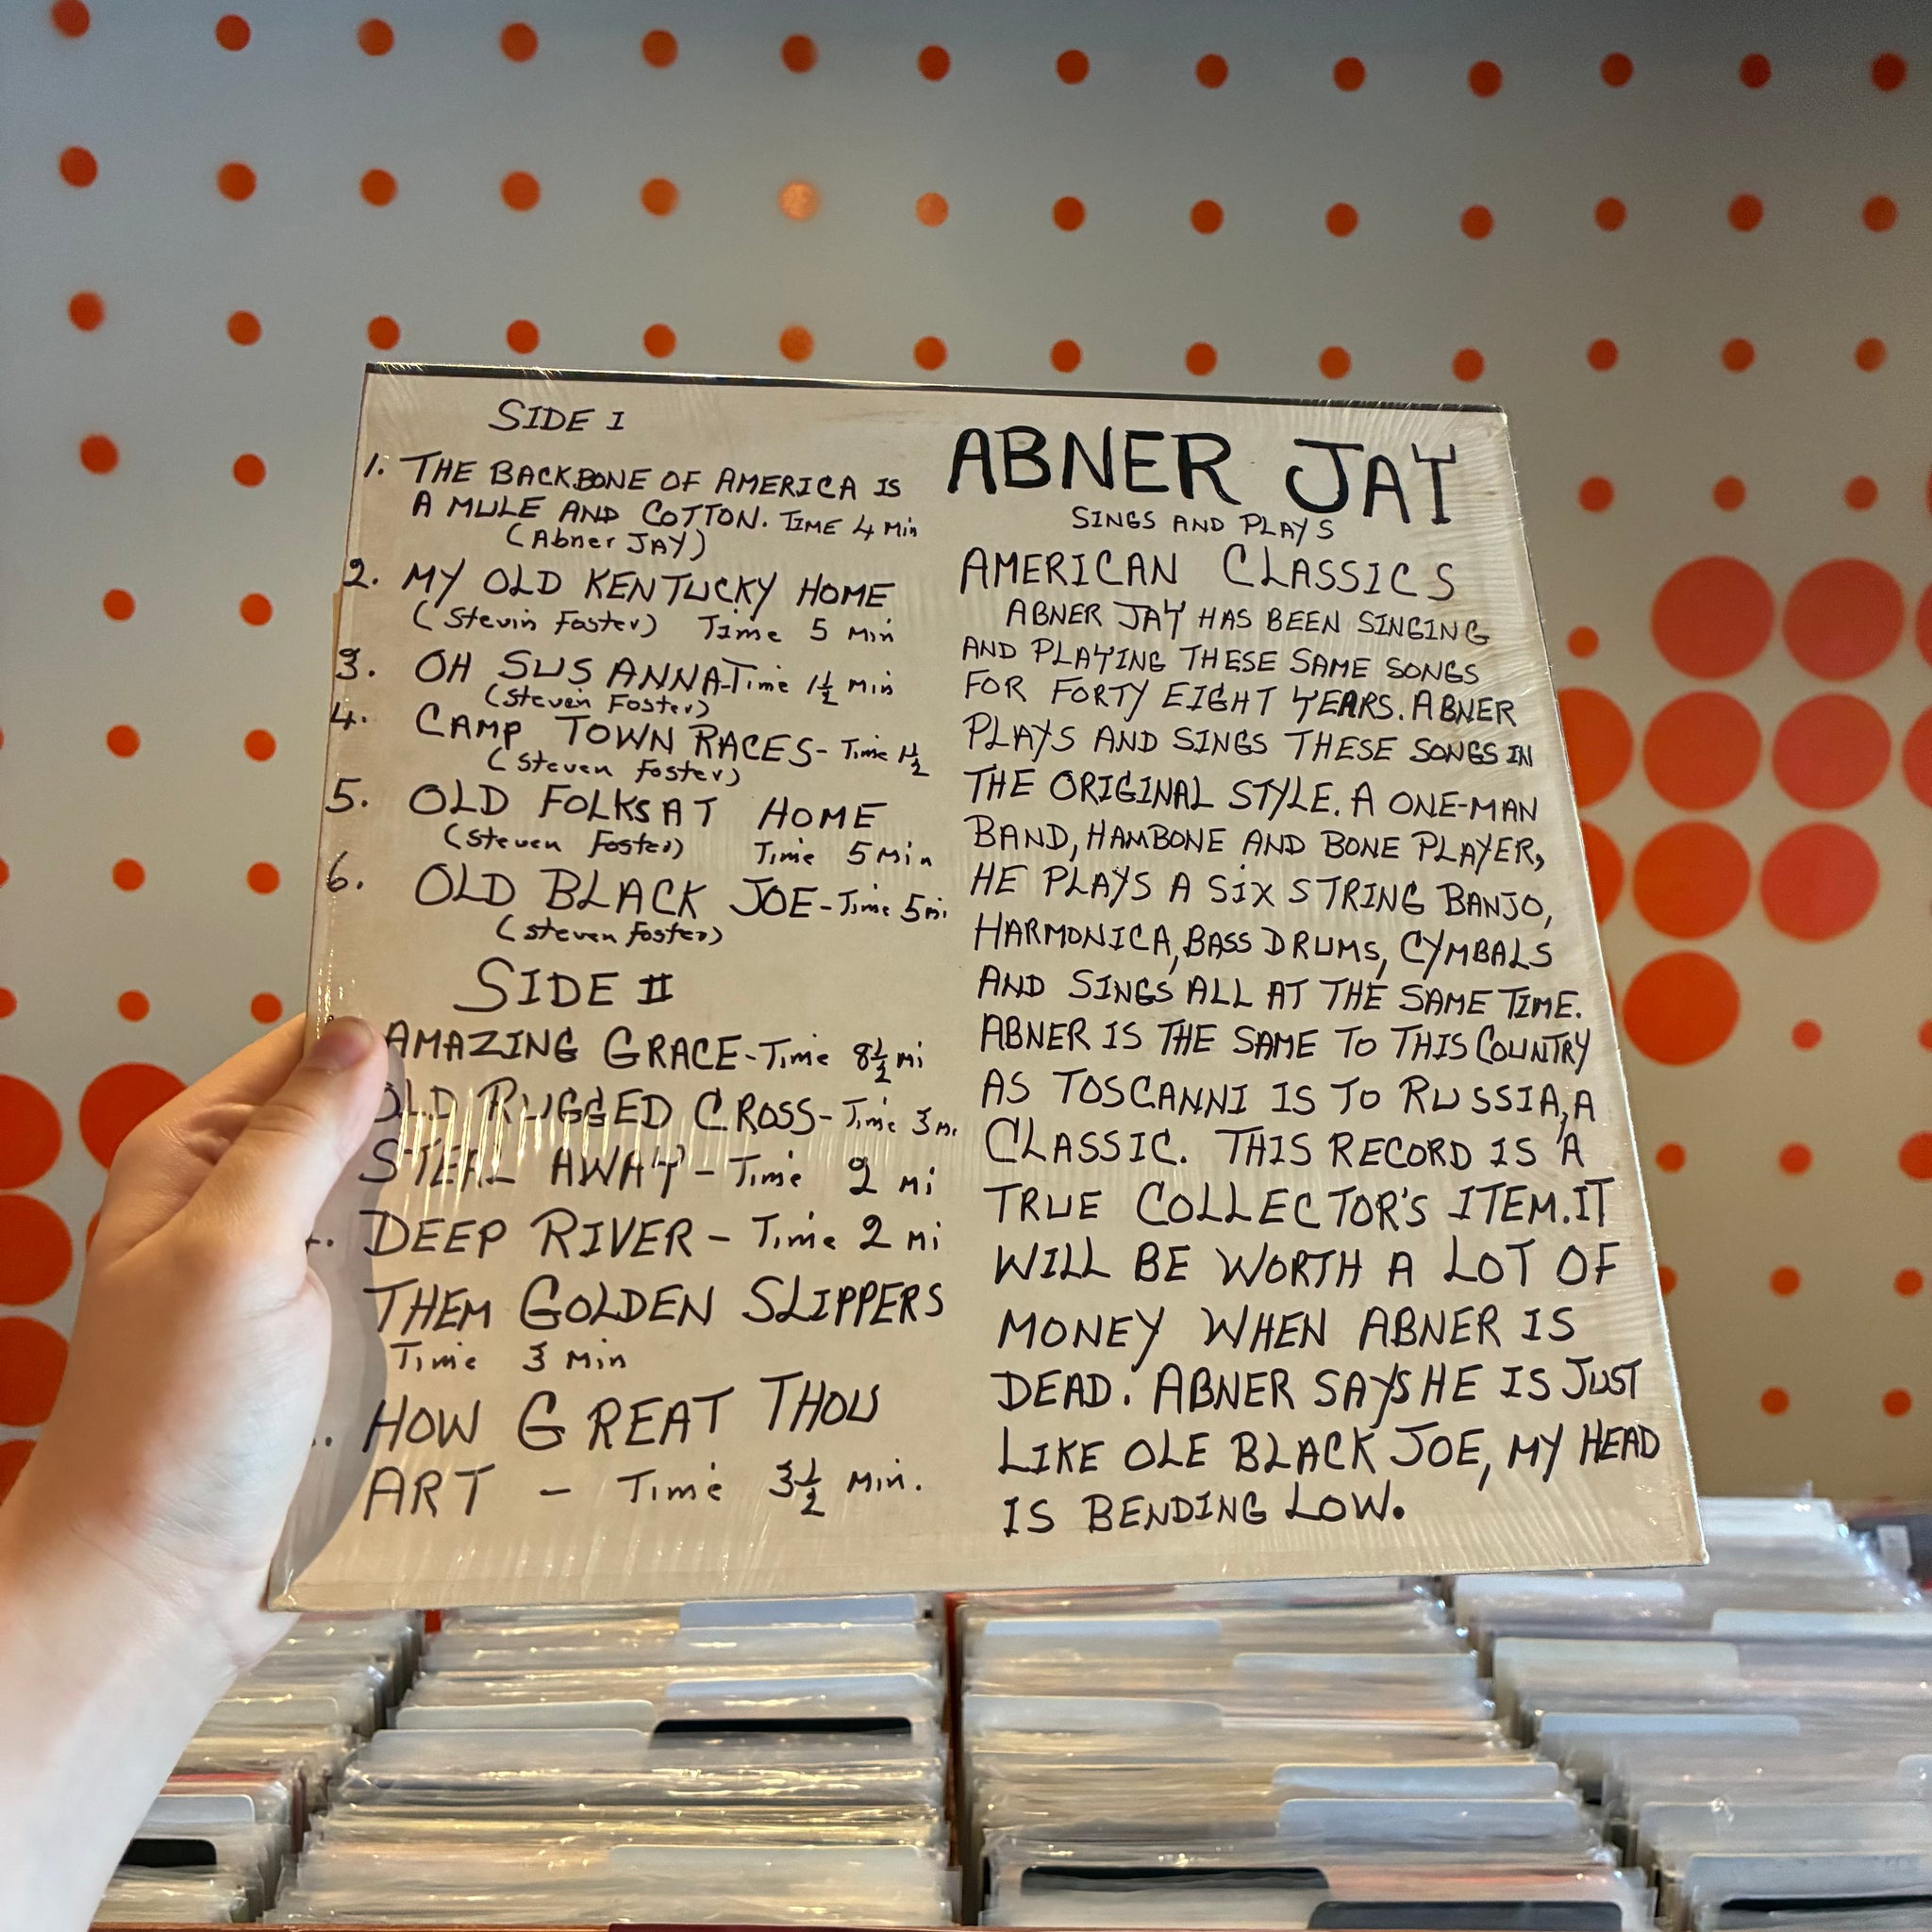 SIDE I
1. THE BACKBONE OF AMERICA IS
A MULE AND COTTON. TIME 4 Min
(Abner JAY)
2. MY OLD KENTUCKY HOME
(Stevin Foster) Time 5 Min
3. OH SUSANNA-Time 1½ Min
(Steven Foster)
4. CAMP TOWN RACES- Time 1½
(Steven Foster)
5. OLD FOLKS AT HOME
(Steven Foster) Time 5 Min
6. OLD BLACK JOE-Time 5 mi
(Steven Foster)
SIDE II
AMAZING GRACE-Time 8½ mi
OLD RUGGED CROSS-Time 3 mi
STEAL AWAY-Time 2 mi
DEEP RIVER-Time 2 mi
THEM GOLDEN SLIPPERS
Time 3 Min
HOW GREAT THOU
ART - Time 3½ Min.
ABNER JAY
SINGS AND PLAYS
AMERICAN CLASSICS
ABNER JAY HAS BEEN SINGING
AND PLAYING THESE SAME SONGS
FOR FORTY EIGHT YEARS. ABNER
PLAYS AND SINGS THESE SONGS IN
THE ORIGINAL STYLE. A ONE-MAN
BAND, HAMBONE AND BONE PLAYER,
HE PLAYS A SIX STRING BANJO,
HARMONICA, BASS DRUMS, CYMBALS
AND SINGS ALL AT THE SAME TIME.
ABNER IS THE SAME TO THIS COUNTRY
AS TOSCANNI IS TO RUSSIA, A
CLASSIC. THIS RECORD IS A
TRUE COLLECTOR'S ITEM. IT
WILL BE WORTH A LOT OF
MONEY WHEN ABNER IS
DEAD. ABNER SAYS HE IS JUST
LIKE OLE BLACK JOE, MY HEAD
IS BENDING LOW.